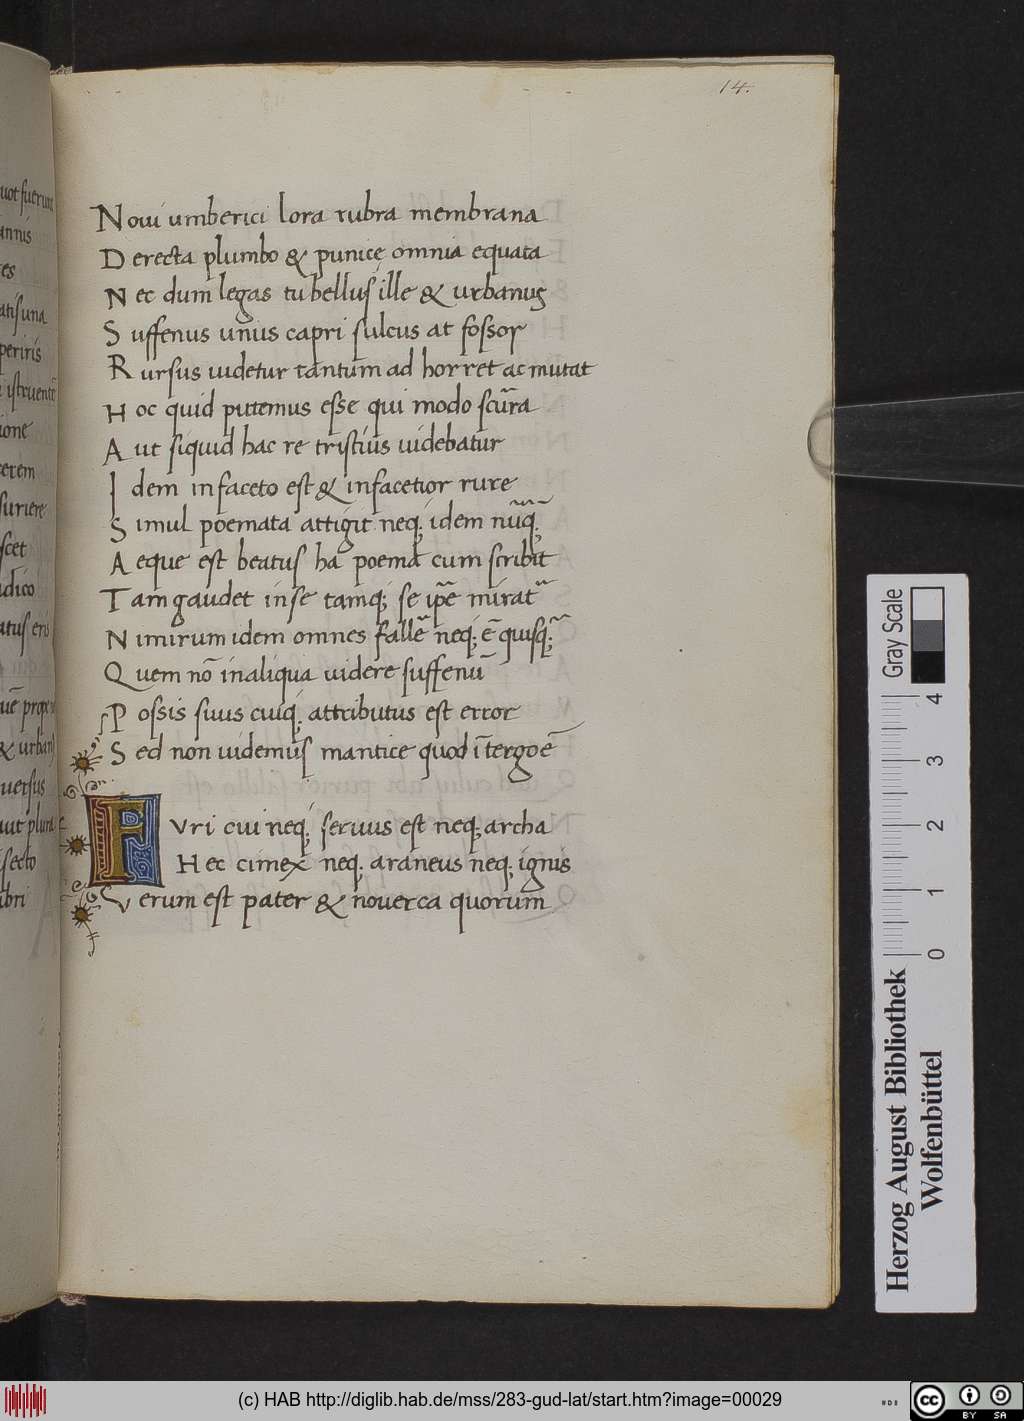 14.
Noui umberici lora rubra membrana
Derecta plumbo & punicę omnia equata
Nec dum legas tu bellus ille & urbanus
Suffenus unus capri sulcus at fossor
Rursus uidetur tantum ad horret ac mutat
Hoc quid putemus esse qui modo scur̃a
Aut siquid hac re tristius uidebatur
Idem infaceto est & infacetior rure
Simul poemata attigit neq; idem nũq̃;
Aeque est beatus ha poema cum scribit
Tam gaudet inse tamq; se ip̃e mirat̃
Nimirum idem omnes fallẽ neq; ẽ quisq̃;
Quem nõ inaliqua uidere suffenũ
Possis suus cuiq; attributus est error
Sed non uidemus mantice quod ĩ tergo ẽ
Furi cui neq; seruus est neq; archa
Hec cimex neq; araneus neq; ignis
Verum est pater & nouerca quorum
uot fuerunt
annis
es
atis una
periris
ione
suriere
scet
dico
atus eris
& urban
uersus
aut plura
secto
ibri
Gray Scale
4
3
2
1
0
Herzog August Bibliothek
Wolfenbüttel
(c) HAB http://diglib.hab.de/mss/283-gud-lat/start.htm?image=00029
cc BY SA